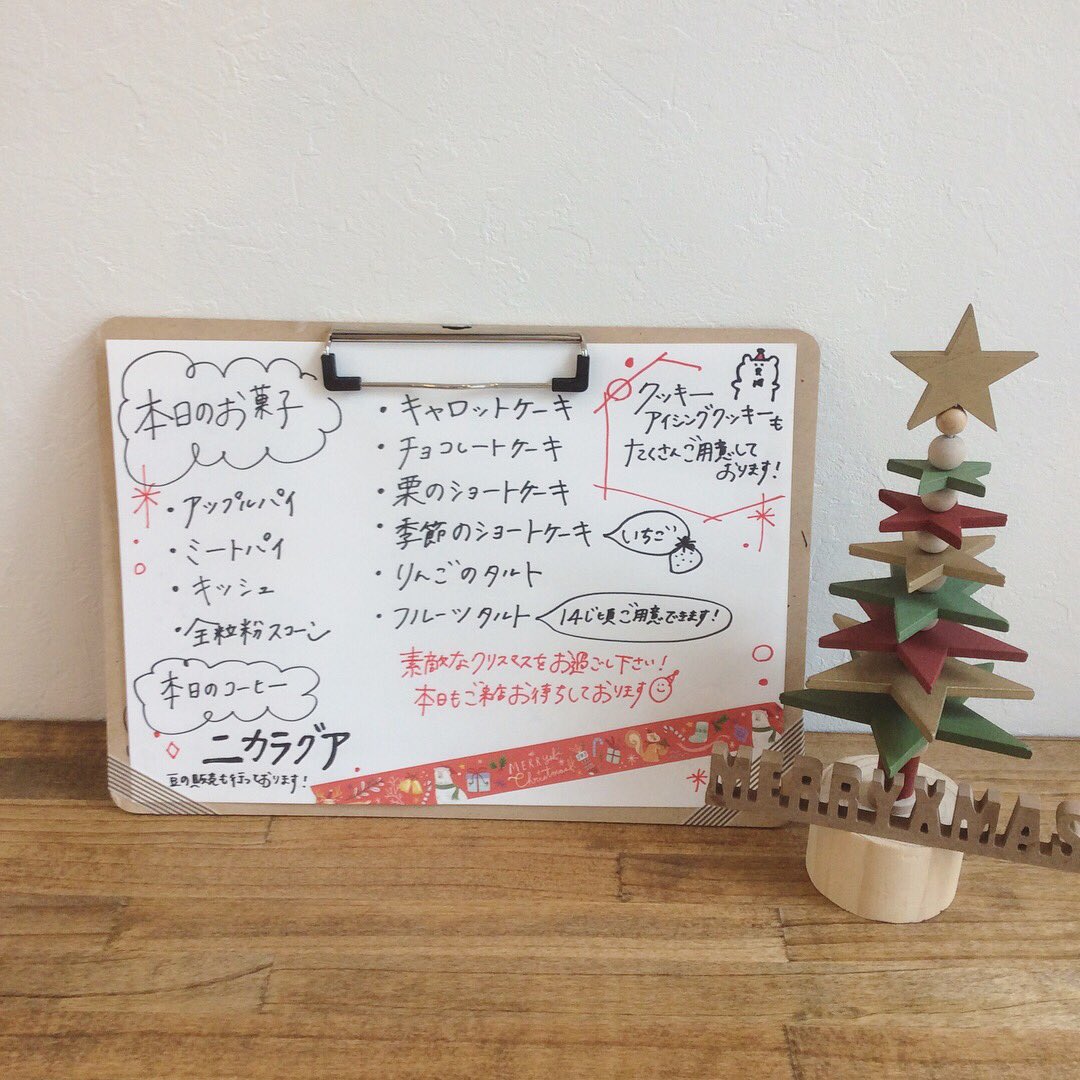 本日のお菓子
・アップルパイ
・ミートパイ
・キッシュ
・全粒粉スコーン
・キャロットケーキ
・チョコレートケーキ
・栗のショートケーキ
・季節のショートケーキ
いちご
・りんごのタルト
・フルーツタルト
14じ頃ご用意できます!
クッキー
アイシングクッキーも
たくさんご用意して
おります!
本日のコーヒー
ニカラグア
豆の販売も行っております!
素敵なクリスマスをお過ごし下さい!
本日もご来店お待ちしております
MERRY
Christmas
MERRYXMAS